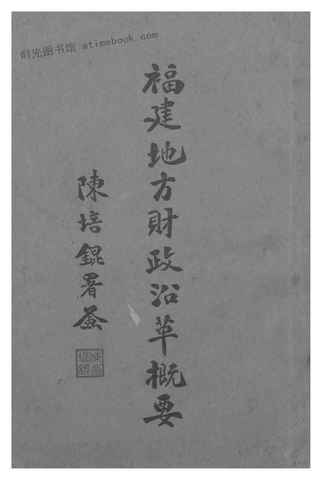 时光图书馆 atimebook.com
福建地方財政沿革概要
陳培錕署